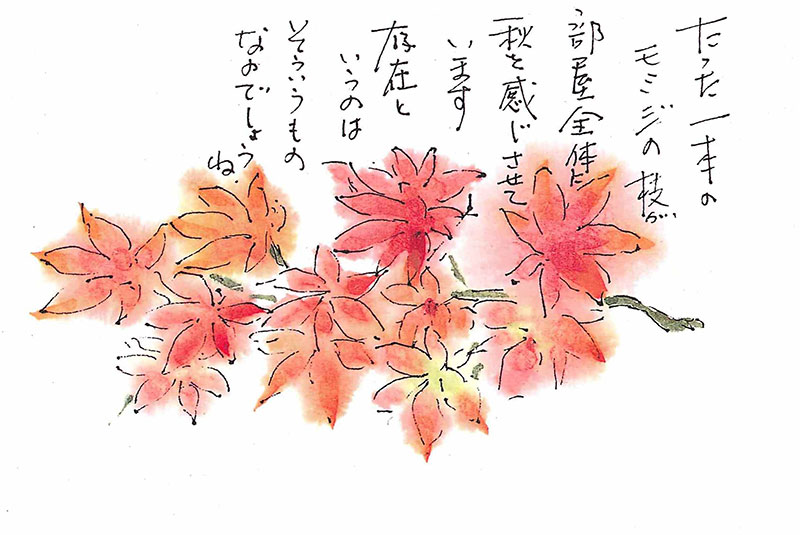 たった一本の
モミジの枝が
部屋全体に
秋を感じさせて
います
存在と
いうのは
そういうもの
なのでしょう
ね。